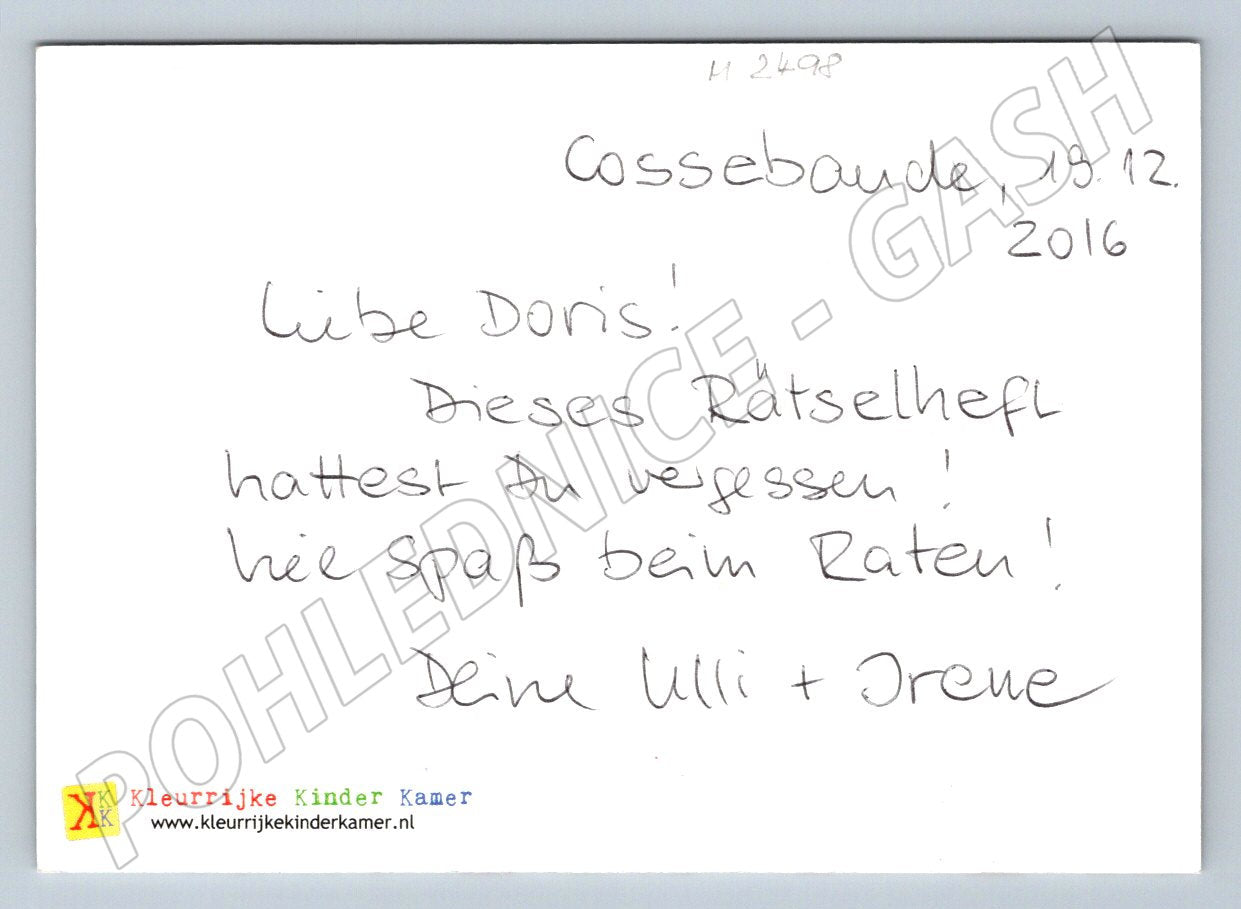 M 2498
Cossebaude, 19.12.
2016
Liebe Doris!
Dieses Rätselheft
hattest Du vergessen!
Viel Spaß beim Raten!
Deine Ulli + Irene
KKK Kleurrijke Kinder Kamer
www.kleurrijkekinderkamer.nl
POHLEDNICE - GASH